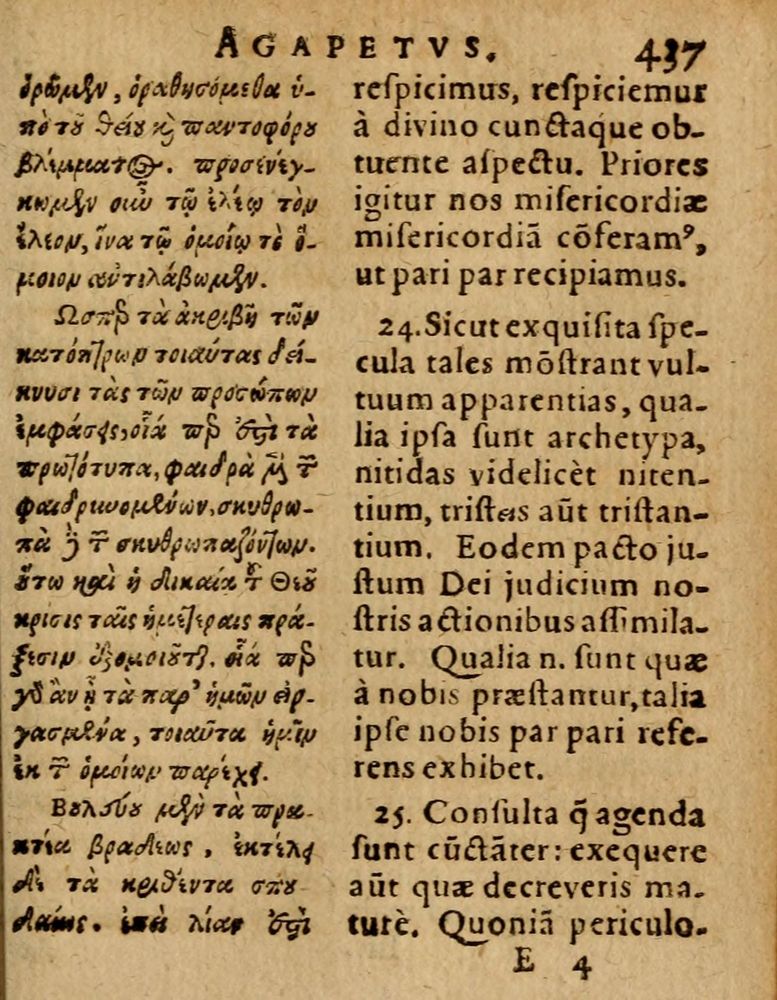 AGAPETVS. 437
ὁρῶμεν, ὁραθησόμεθα ὑ-
πὸ τοῦ θείου καὶ παντοφόρου
βλέμματος. προσενέγ-
κωμεν οὖν τῷ ἐλέῳ τὸν
ἔλεον, ἵνα τῷ ὁμοίῳ τὸ ὅ-
μοιον ἀντιλάβωμεν.
Ωσπερ τὰ ἀκριβῆ τῶν
κατόπτρων τοιαύτας δεί-
κνυσι τὰς τῶν προσώπων
ἐμφάσεις, οἷά περ ἐστὶ τὰ
πρωτότυπα, φαιδρὰ μὲν τῶν
φαιδρυνομένων, σκυθρω-
πὰ δὲ τῶν σκυθρωπαζόντων.
οὕτω καὶ ἡ δικαία τοῦ Θεοῦ
κρίσις ταῖς ἡμετέραις πρά-
ξεσιν ἐξομοιοῦται. οἷά περ
γὰρ ἂν ᾖ τὰ παρ' ἡμῶν εἰρ-
γασμένα, τοιαῦτα ἡμῖν
ἐκ τῶν ὁμοίων παρέχει.
Βουλεύου μὲν τὰ πρα-
κτέα βραδέως, ἐκτέλει
δὲ τὰ κριθέντα σπου
δαίως. ἐπεὶ λίαν ἐστὶ
reſpicimus, reſpiciemur
à divino cunctaque ob-
tuente aſpectu. Priores
igitur nos miſericordiæ
miſericordiã cõferamꝰ,
ut pari par recipiamus.
24. Sicut exquiſita ſpe-
cula tales mõſtrant vul-
tuum apparentias, qua-
lia ipſa ſunt archetypa,
nitidas videlicèt niten-
tium, triſteis aũt triſtan-
tium. Eodem pacto ju-
ſtum Dei judicium no-
ſtris actionibus aſſimila-
tur. Qualia n. ſunt quæ
à nobis præſtantur, talia
ipſe nobis par pari refe-
rens exhibet.
25. Conſulta q̃ agenda
ſunt cũctãter: exequere
aũt quæ decreveris ma-
turè. Quoniã periculo-
E 4